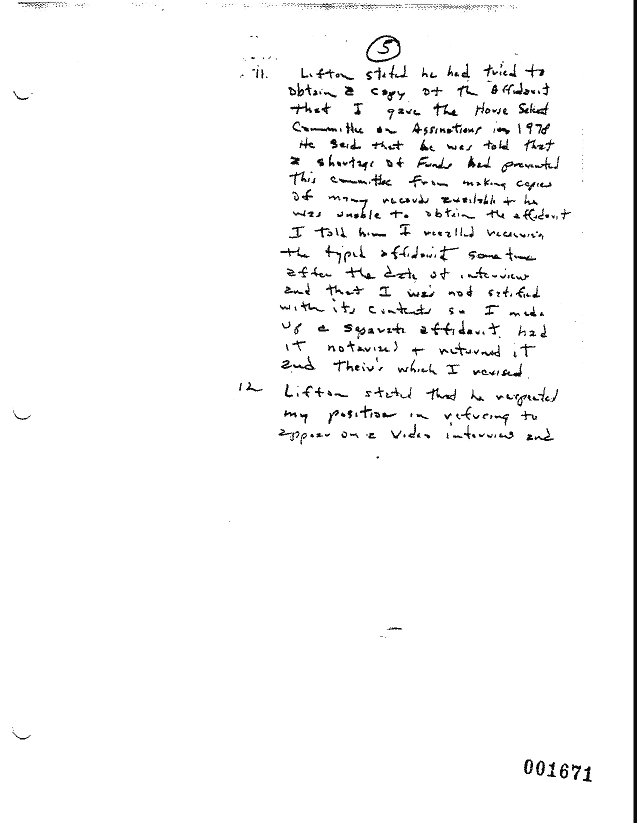 5
11. Lifton stated he had tried to
obtain a copy of the Affidavit
that I gave the House Select
Committee on Assinations in 1978
He said that he was told that
a shortage of Funds had prevented
This committee from making copies
of many records available + he
was unable to obtain the affidavit
I told him I recalled receiving
the typed affidavit some time
after the date of interview
and that I was not satified
with its contents so I made
up a separate affidavit, had
it notarized + returned it
and Their's which I revised.
12 Lifton stated that he respected
my position in refusing to
appear on a Video interview and
001671